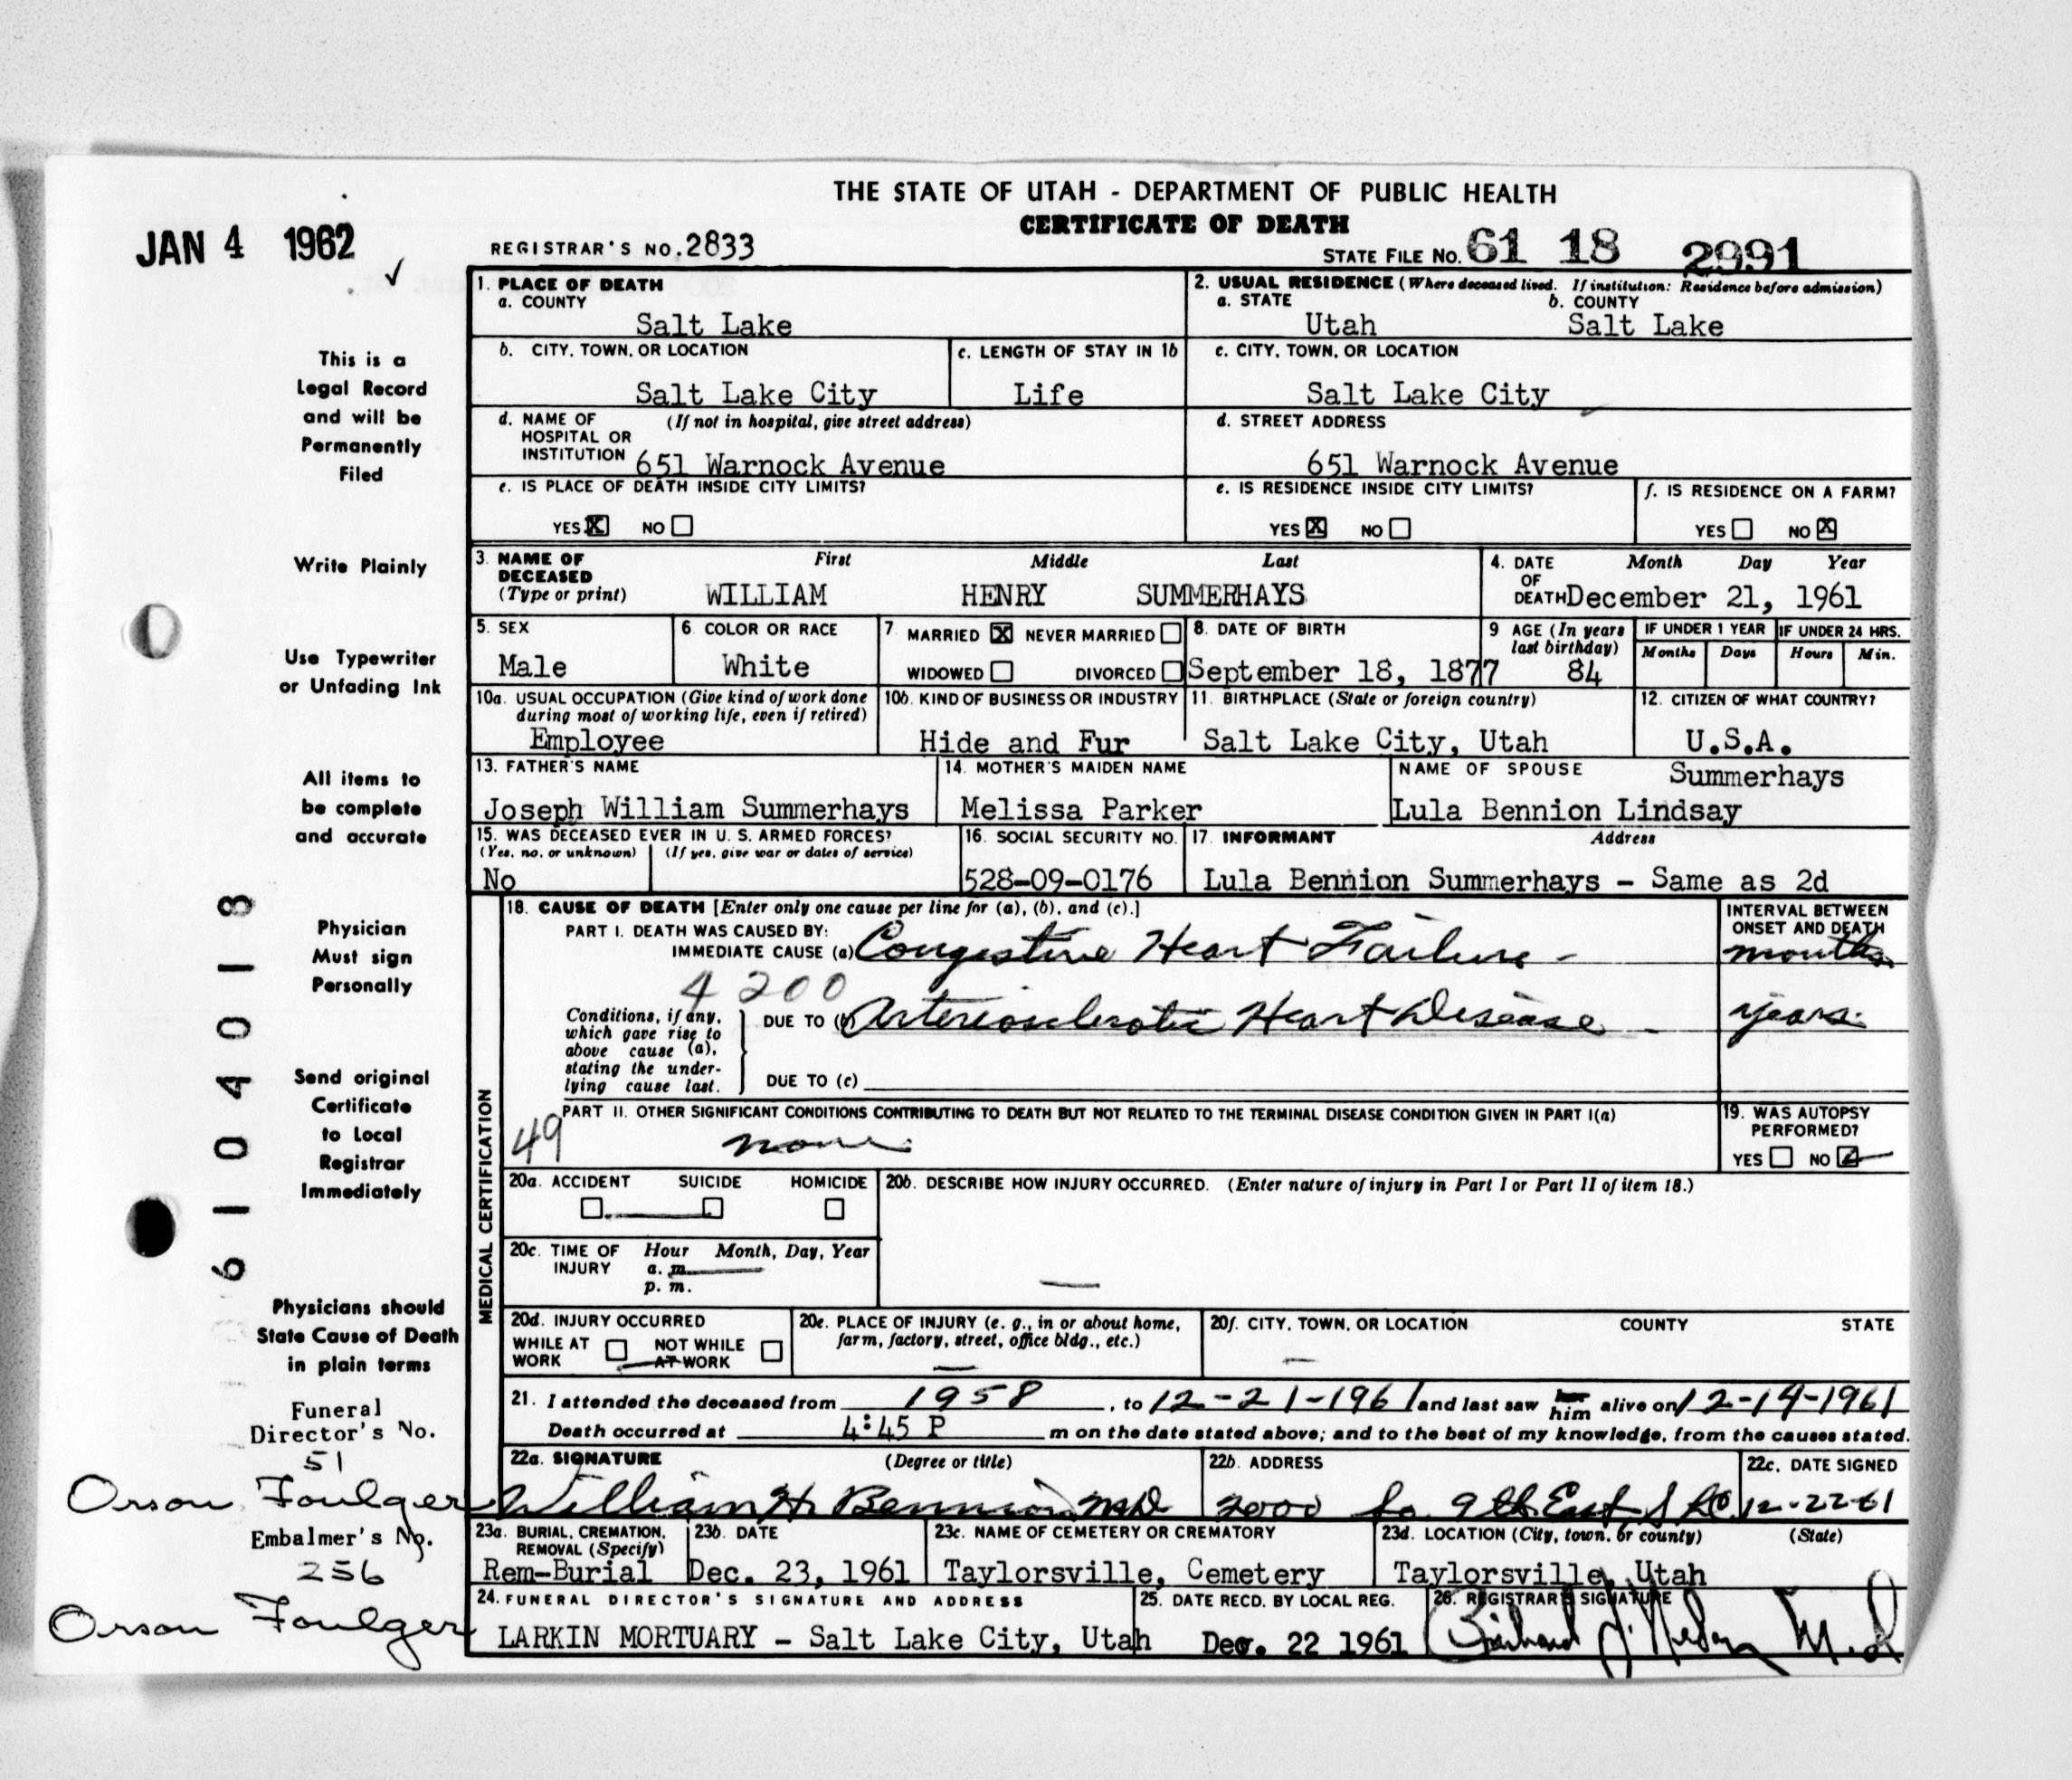 THE STATE OF UTAH - DEPARTMENT OF PUBLIC HEALTH
CERTIFICATE OF DEATH
JAN 4 1962
REGISTRAR'S NO. 2833
STATE FILE NO. 61 18 2991
1. PLACE OF DEATH
a. COUNTY
Salt Lake
2. USUAL RESIDENCE (Where deceased lived. If institution: Residence before admission)
a. STATE b. COUNTY
Utah Salt Lake
b. CITY, TOWN, OR LOCATION
Salt Lake City
c. LENGTH OF STAY IN 1b
Life
c. CITY, TOWN, OR LOCATION
Salt Lake City
d. NAME OF (If not in hospital, give street address)
HOSPITAL OR
INSTITUTION 651 Warnock Avenue
d. STREET ADDRESS
651 Warnock Avenue
e. IS PLACE OF DEATH INSIDE CITY LIMITS?
YES X NO
e. IS RESIDENCE INSIDE CITY LIMITS?
YES X NO
f. IS RESIDENCE ON A FARM?
YES NO X
3. NAME OF First Middle Last
DECEASED
(Type or print) WILLIAM HENRY SUMMERHAYS
4. DATE Month Day Year
OF
DEATH December 21, 1961
5. SEX
Male
6. COLOR OR RACE
White
7 MARRIED X NEVER MARRIED
WIDOWED DIVORCED
8. DATE OF BIRTH
September 18, 1877
9 AGE (In years
last birthday)
84
IF UNDER 1 YEAR
Months Days
IF UNDER 24 HRS.
Hours Min.
10a. USUAL OCCUPATION (Give kind of work done
during most of working life, even if retired)
Employee
10b. KIND OF BUSINESS OR INDUSTRY
Hide and Fur
11. BIRTHPLACE (State or foreign country)
Salt Lake City, Utah
12. CITIZEN OF WHAT COUNTRY?
U.S.A.
13. FATHER'S NAME
Joseph William Summerhays
14. MOTHER'S MAIDEN NAME
Melissa Parker
NAME OF SPOUSE Summerhays
Lula Bennion Lindsay
15. WAS DECEASED EVER IN U. S. ARMED FORCES?
(Yes, no, or unknown) (If yes, give war or dates of service)
No
16. SOCIAL SECURITY NO.
528-09-0176
17. INFORMANT Address
Lula Bennion Summerhays - Same as 2d
MEDICAL CERTIFICATION
18. CAUSE OF DEATH [Enter only one cause per line for (a), (b), and (c).]
PART I. DEATH WAS CAUSED BY:
IMMEDIATE CAUSE (a) Congestive Heart Failure -
INTERVAL BETWEEN
ONSET AND DEATH
months
4200
Conditions, if any,
which gave rise to
above cause (a),
stating the under-
lying cause last.
DUE TO (b) Arteriosclerotic Heart Disease -
years
DUE TO (c)
PART II. OTHER SIGNIFICANT CONDITIONS CONTRIBUTING TO DEATH BUT NOT RELATED TO THE TERMINAL DISEASE CONDITION GIVEN IN PART I(a)
49 none
19. WAS AUTOPSY
PERFORMED?
YES NO
20a. ACCIDENT SUICIDE HOMICIDE
20b. DESCRIBE HOW INJURY OCCURRED. (Enter nature of injury in Part I or Part II of item 18.)
20c. TIME OF Hour Month, Day, Year
INJURY a. m.
p. m.
20d. INJURY OCCURRED
WHILE AT NOT WHILE
WORK AT WORK
20e. PLACE OF INJURY (e. g., in or about home,
farm, factory, street, office bldg., etc.)
20f. CITY, TOWN, OR LOCATION COUNTY STATE
21. I attended the deceased from 1958, to 12-21-1961 and last saw her him alive on 12-14-1961
Death occurred at 4:45 P m on the date stated above; and to the best of my knowledge, from the causes stated.
22a. SIGNATURE (Degree or title)
William H. Bennion M.D.
22b. ADDRESS
2000 So. 9th East SLC
22c. DATE SIGNED
12-22-61
23a. BURIAL, CREMATION,
REMOVAL (Specify)
Rem-Burial
23b. DATE
Dec. 23, 1961
23c. NAME OF CEMETERY OR CREMATORY
Taylorsville, Cemetery
23d. LOCATION (City, town, or county) (State)
Taylorsville, Utah
24. FUNERAL DIRECTOR'S SIGNATURE AND ADDRESS
LARKIN MORTUARY - Salt Lake City, Utah
25. DATE RECD. BY LOCAL REG.
Dec. 22 1961
26. REGISTRAR'S SIGNATURE
This is a
Legal Record
and will be
Permanently
Filed
Write Plainly
Use Typewriter
or Unfading Ink
All items to
be complete
and accurate
Physician
Must sign
Personally
Send original
Certificate
to Local
Registrar
Immediately
6104018
Physicians should
State Cause of Death
in plain terms
Funeral
Director's No.
51
Orson Foulger
Embalmer's No.
256
Orson Foulger